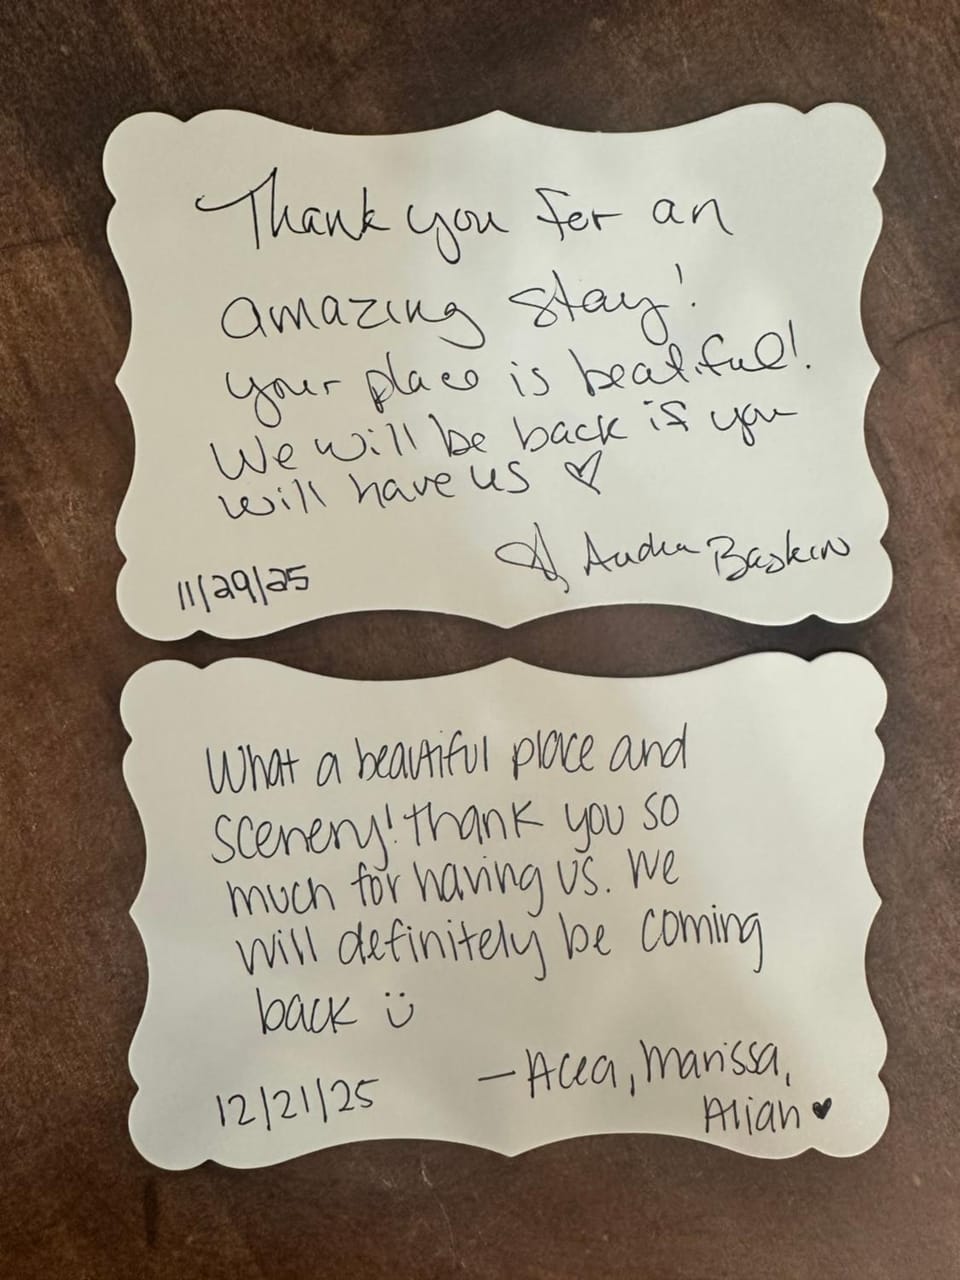 Thank you for an
amazing stay!
your place is beatiful!
We will be back if you
will have us ♡
Baskin
11/29/25
What a beautiful place and
scenery! thank you so
much for having us. We
will definitely be coming
back ü
— Acea, Marissa,
Alian ♥
12/21/25